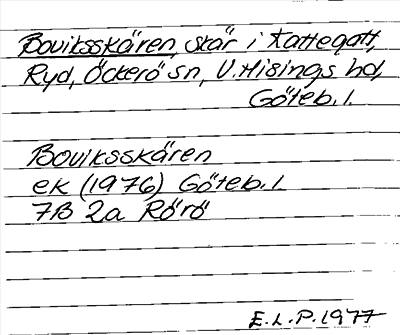 Boviksskären, skär i Kattegatt,
Ryd, Öckerö sn, V. Hisings hd,
Göteb. l.
Boviksskären
ek (1976) Göteb. l.
7B 2a Rörö
E. L. P. 1977